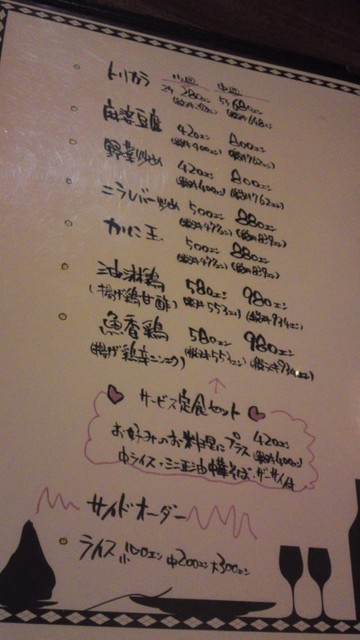 小皿 中皿
トリカラ 2ヶ 280エン 5ヶ 680エン
(税抜648エン)
麻婆豆腐 420エン 800エン
(税抜400エン) (税抜762エン)
野菜炒め 420エン 800エン
(税抜400エン) (税抜762エン)
ニラレバー炒め 500エン 880エン
(税抜477エン) (税抜839エン)
かに玉 500エン 880エン
(税抜477エン) (税抜839エン)
油淋鶏 580エン 980エン
(揚げ鶏甘酢) (税抜553エン) (税抜934エン)
魚香鶏 580エン 980エン
(揚げ鶏辛ニンニク) (税抜553エン) (税抜934エン)
サービス定食セット
お好みのお料理にプラス 420エン
(税抜400エン)
中ライス・ミニ正油中華そば・ザーサイ付
サイドオーダー
ライス 小100エン 中200エン 大300エン